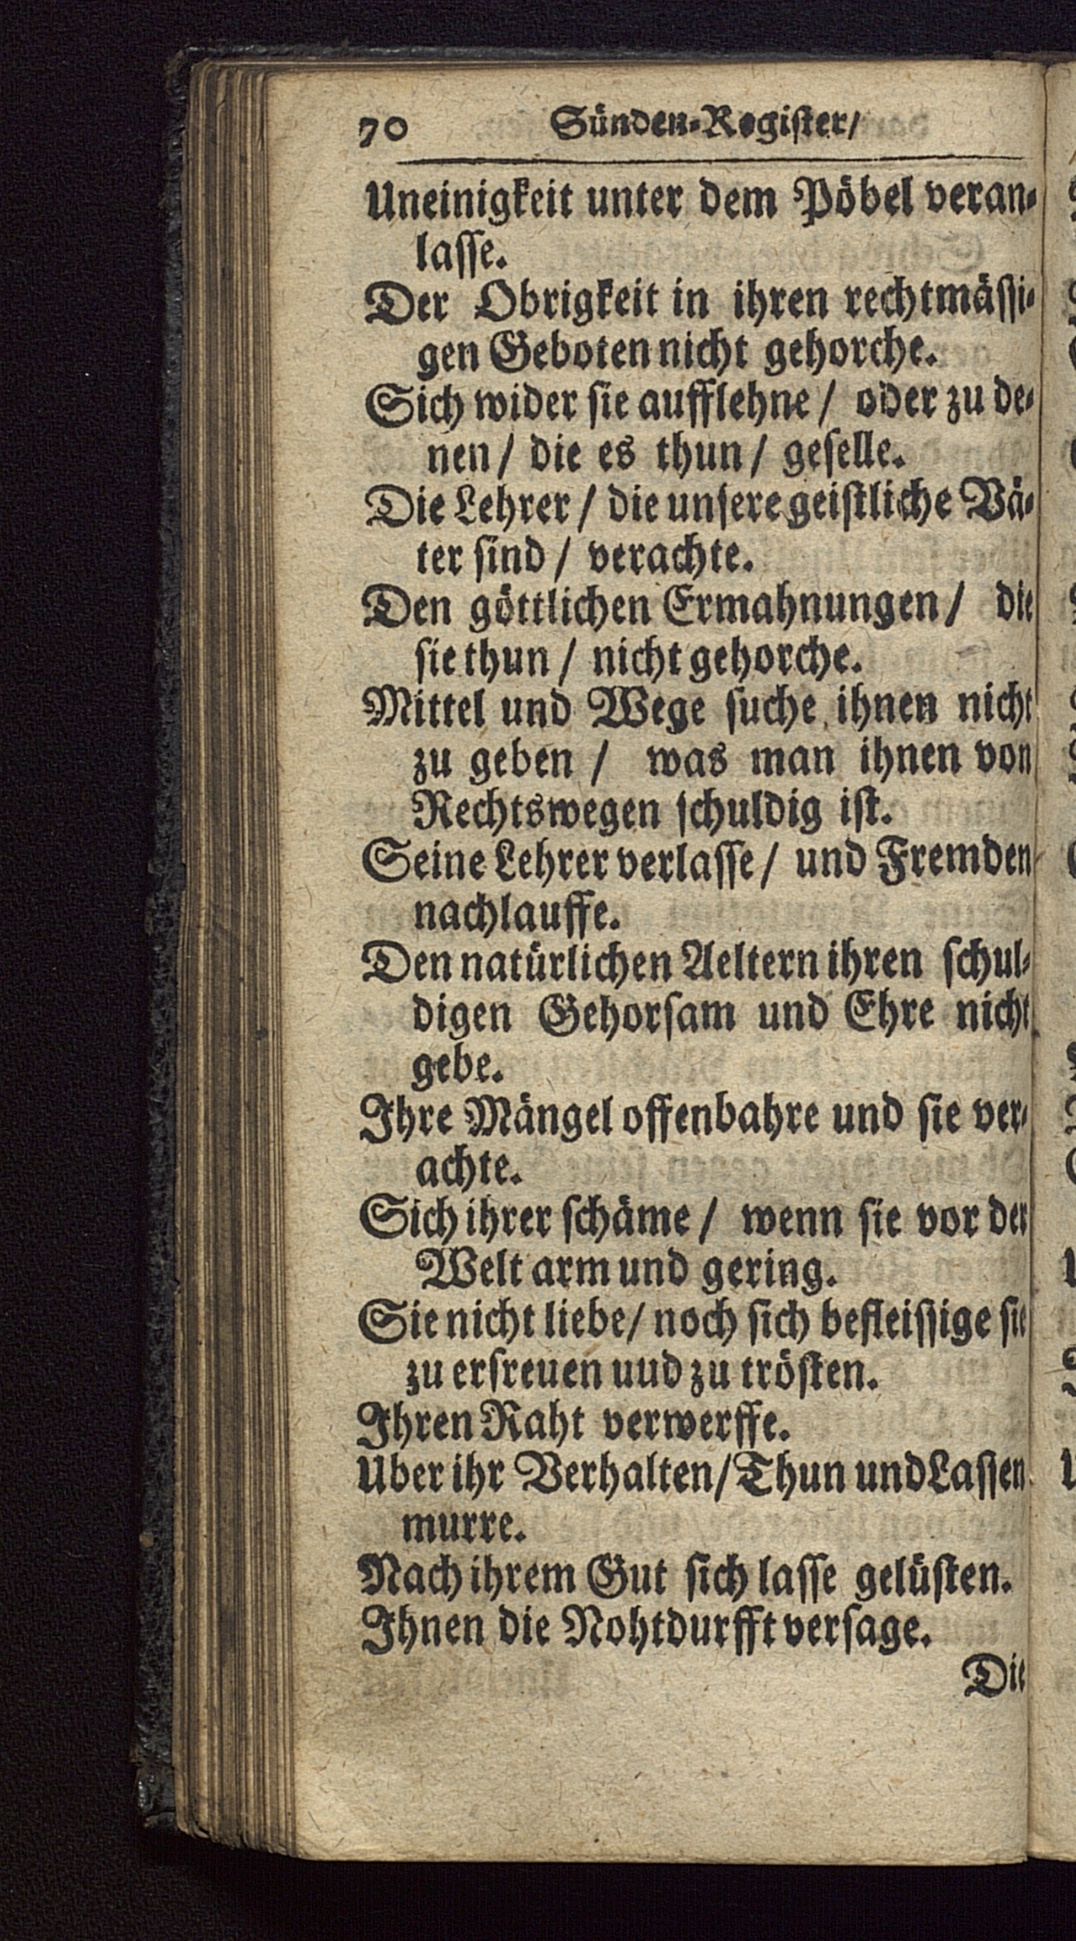 70 Sünden-Register/
Uneinigkeit unter dem Pöbel veran-
lasse.
Der Obrigkeit in ihren rechtmässi-
gen Geboten nicht gehorche.
Sich wider sie aufflehne / oder zu de-
nen / die es thun / geselle.
Die Lehrer / die unsere geistliche Vä-
ter sind / verachte.
Den göttlichen Ermahnungen / die
sie thun / nicht gehorche.
Mittel und Wege suche ihnen nicht
zu geben / was man ihnen von
Rechtswegen schuldig ist.
Seine Lehrer verlasse / und Fremden
nachlauffe.
Den natürlichen Aeltern ihren schul-
digen Gehorsam und Ehre nicht
gebe.
Ihre Mängel offenbahre und sie ver-
achte.
Sich ihrer schäme / wenn sie vor der
Welt arm und gering.
Sie nicht liebe / noch sich befleissige sie
zu erfreuen uud zu trösten.
Ihren Raht verwerffe.
Uber ihr Verhalten / Thun und Lassen
murre.
Nach ihrem Gut sich lasse gelüsten.
Ihnen die Nohtdurfft versage.
Die